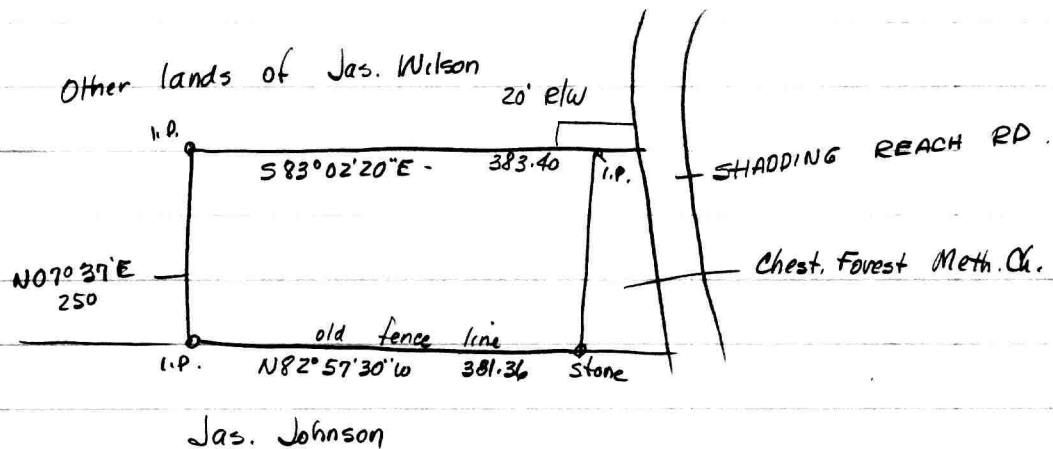 Other lands of Jas. Wilson
20' R/W
I.P.
S 83° 02' 20" E - 383.40
I.P.
SHADDING REACH RD.
N07° 37' E
250
Chest. Forest Meth. Ch.
old fence line
I.P. N82° 57' 30" W 381.36 Stone
Jas. Johnson